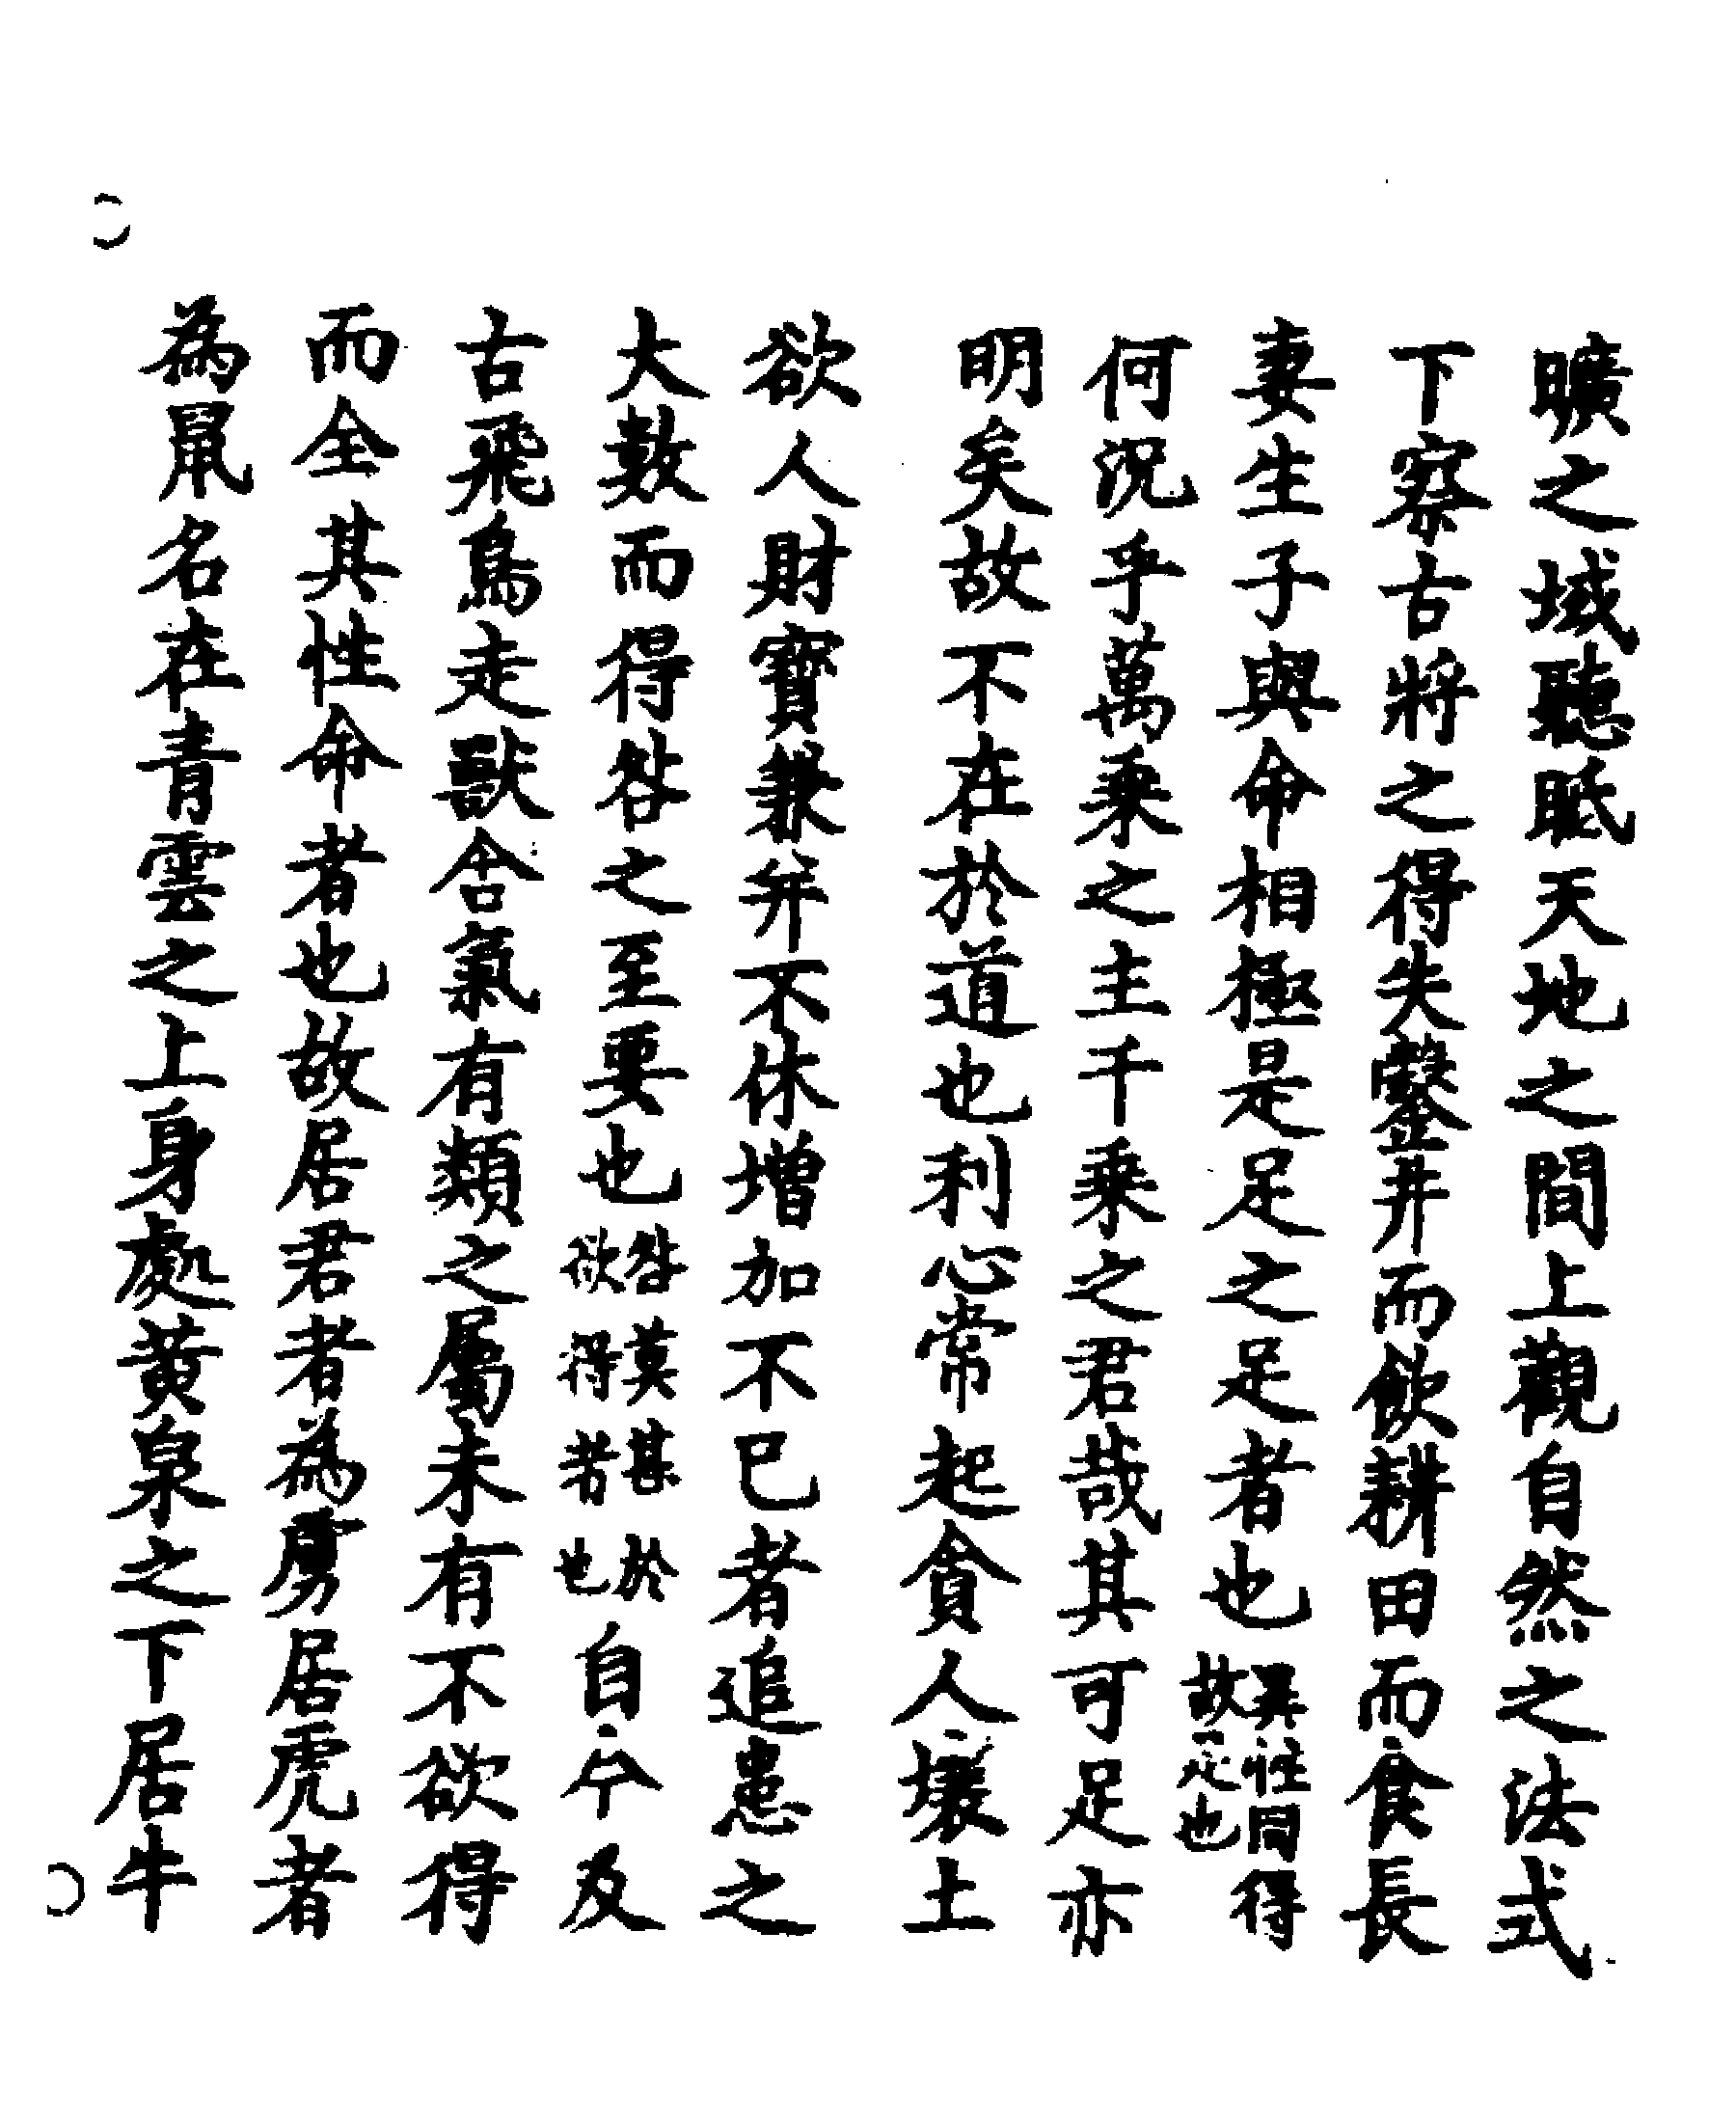 曠之域聽眂天地之間上觀自然之法式
下察古將之得失鑿井而飲耕田而食長
妻生子與命相極是足之足者也其性同得故足也
何況乎萬乗之主千乗之君哉其可足亦
明矣故不在於道也利心常起貪人壤土
欲人財寶兼并不休增加不已者追患之
大数而得咎之至要也咎莫甚於欲得者也自今及
古飛鳥走獸含氣有類之屬未有不欲得
而全其性命者也故居君者為虜居虎者
為鼠名在青雲之上身處黃泉之下居牛